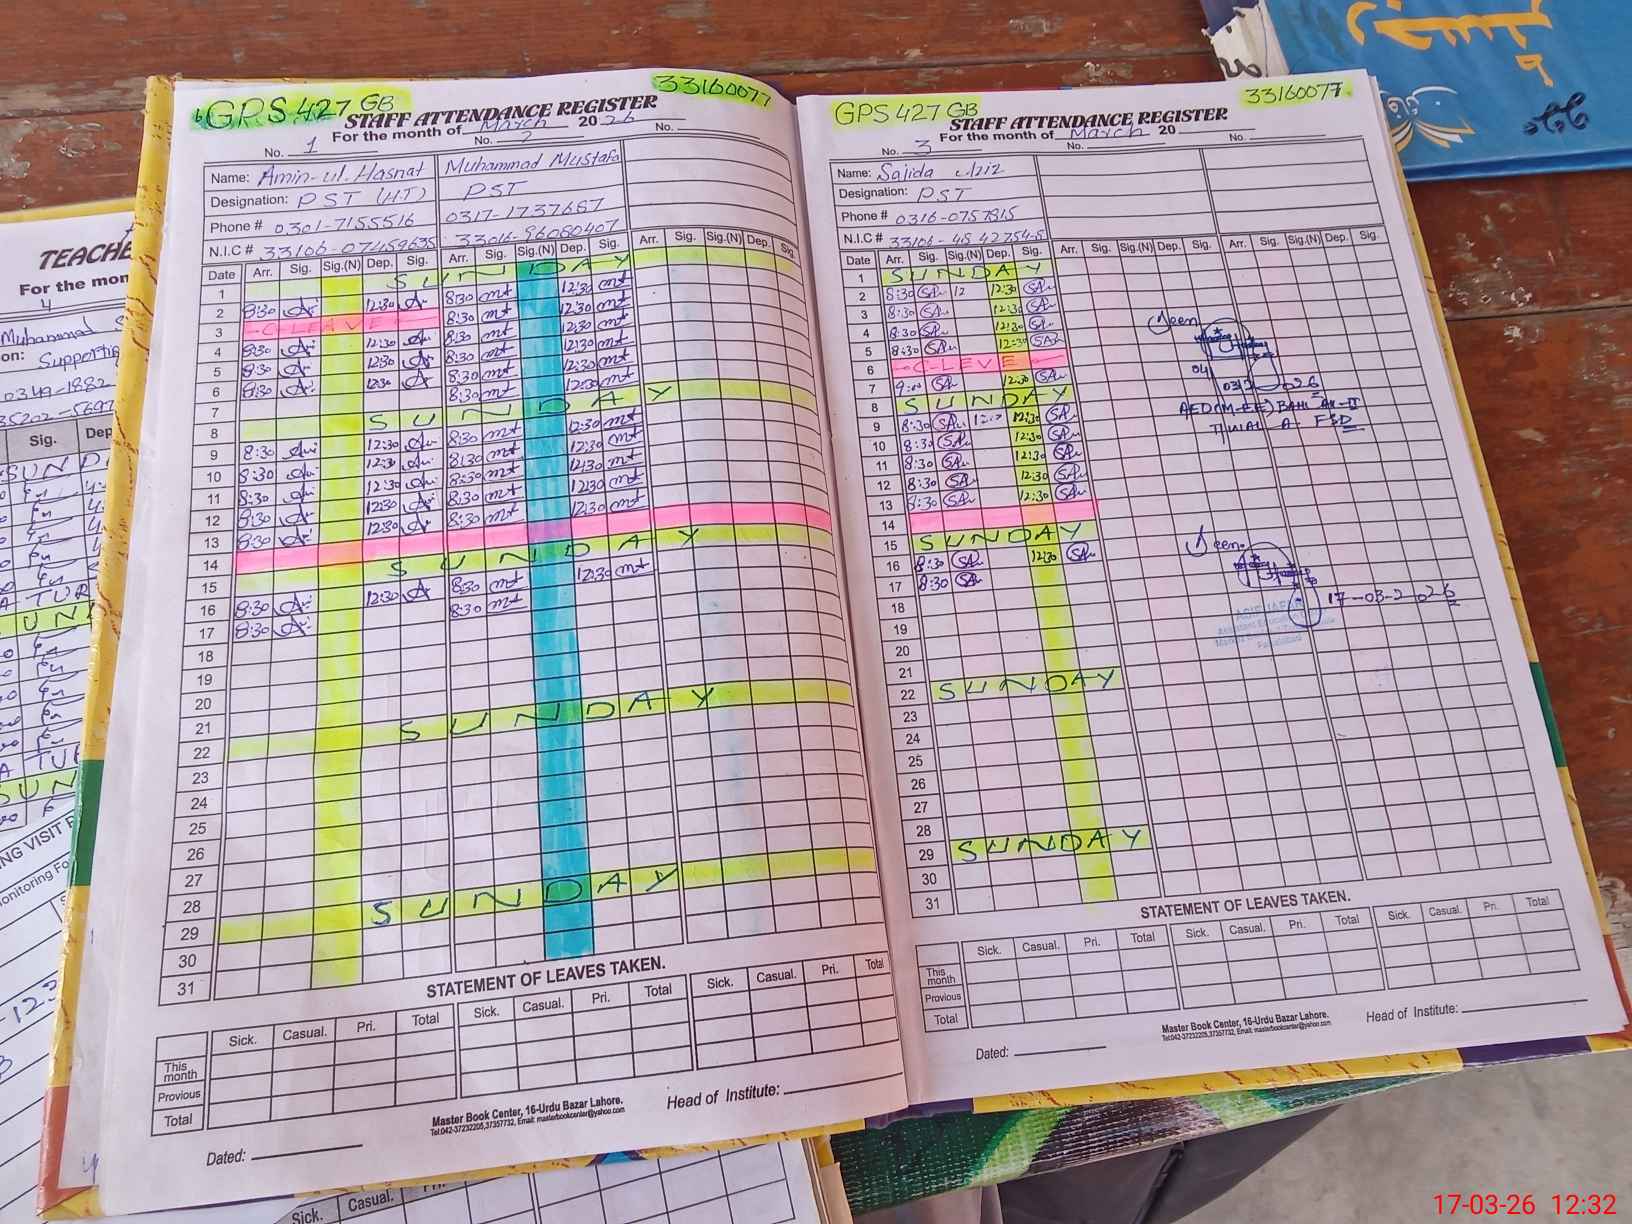 GPS 427 GB
33160077
STAFF ATTENDANCE REGISTER
For the month of March 2026
No. 1 No. 2 No.
Name: Amin-ul-Hasnat Muhammad Mustafa
Designation: PST (H.T) PST
Phone # 0301-7155516 0317-1737687
N.I.C # 33106-07459635 33016-96080407
Date Arr. Sig. Sig.(N) Dep. Sig. Arr. Sig. Sig.(N) Dep. Sig. Arr. Sig. Sig.(N) Dep. Sig.
1 SUNDAY
2 8:30 12:30 8:30 mt 12:30 mt
3 C-LEAVE 8:30 mt 12:30 mt
4 8:30 12:30 8:30 mt 12:30 mt
5 8:30 12:30 8:30 mt 12:30 mt
6 8:30 12:30 8:30 mt 12:30 mt
7 8:30 mt 12:30 mt
8 SUNDAY
9 8:30 12:30 8:30 mt 12:30 mt
10 8:30 12:30 8:30 mt 12:30 mt
11 8:30 12:30 8:30 mt 12:30 mt
12 8:30 12:30 8:30 mt 12:30 mt
13 8:30 12:30 8:30 mt 12:30 mt
14
15 SUNDAY
16 8:30 12:30 8:30 mt 12:30 mt
17 8:30 8:30 mt
18
19
20
21
22 SUNDAY
23
24
25
26
27
28
29 SUNDAY
30
31
STATEMENT OF LEAVES TAKEN.
Sick. Casual. Pri. Total Sick. Casual. Pri. Total Sick. Casual. Pri. Total
This month
Previous
Total
Master Book Center, 16-Urdu Bazar Lahore.
Tel:042-37232205,37357732, Email: masterbookcenter@yahoo.com
Head of Institute:
Dated:
GPS 427 GB
33160077
STAFF ATTENDANCE REGISTER
For the month of March 20
No. 3 No. No.
Name: Sajida Aziz
Designation: PST
Phone # 0316-0757815
N.I.C # 33106-4842754-8
Date Arr. Sig. Sig.(N) Dep. Sig. Arr. Sig. Sig.(N) Dep. Sig. Arr. Sig. Sig.(N) Dep. Sig.
1 SUNDAY
2 8:30 SA 12 12:30 SA
3 8:30 SA 12:30 SA
4 8:30 SA 12:30 SA
5 8:30 SA 12:30 SA
6 C-LEVE
7 SA 12:30 SA
8 SUNDAY
9 8:30 SA 12:30 SA
10 8:30 SA 12:30 SA
11 8:30 SA 12:30 SA
12 8:30 SA 12:30 SA
13 8:30 SA 12:30 SA
14
15 SUNDAY
16 8:30 SA 12:30 SA
17 8:30 SA
18
19
20
21
22 SUNDAY
23
24
25
26
27
28
29 SUNDAY
30
31
Seen
Seen
17-03-2026
STATEMENT OF LEAVES TAKEN.
Sick. Casual. Pri. Total Sick. Casual. Pri. Total Sick. Casual. Pri. Total
This month
Previous
Total
Master Book Center, 16-Urdu Bazar Lahore.
Tel:042-37232205,37357732, Email: masterbookcenter@yahoo.com
Head of Institute:
Dated:
TEACHE
For the mon
4
Muhammad
on: Supporti
0349-1882
35202-5697
Sig. Dep
SUND
NG VISIT
onitoring Fo
Sick. Casual.
17-03-26 12:32